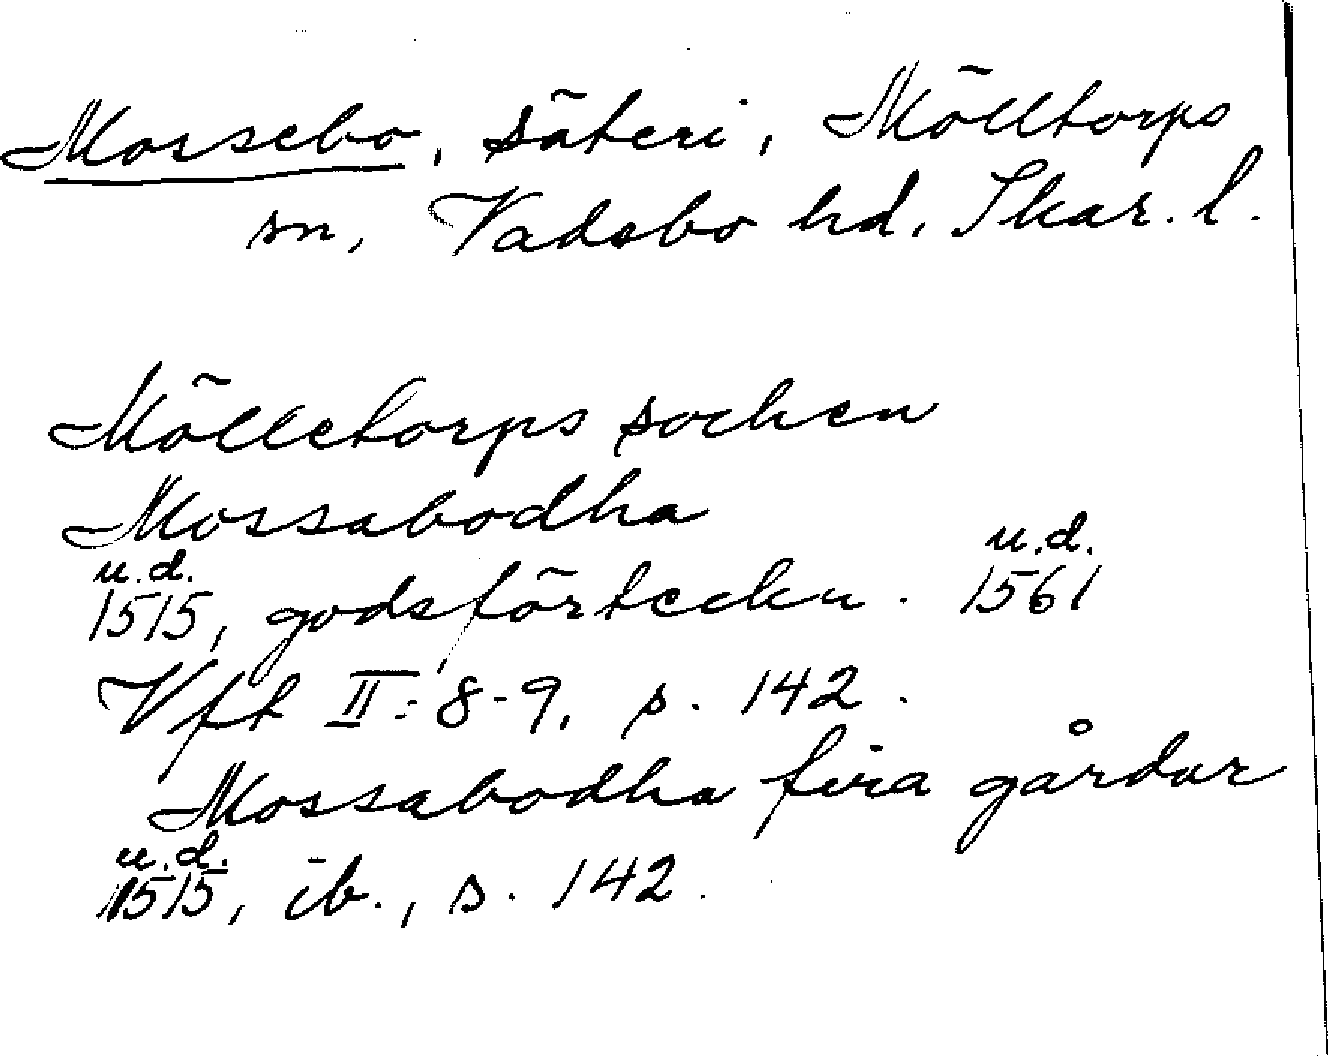 Mossebo, säteri, Mölltorps
sn, Vadsbo hd. Skar. l.
Mölletorps sochen
Mossabodha
u.d. u.d.
1515, godsförteckn. 1561
Vft II: 8-9, s. 142.
Mossabodha fira gårdar
u.d.
1515, ib., s. 142.